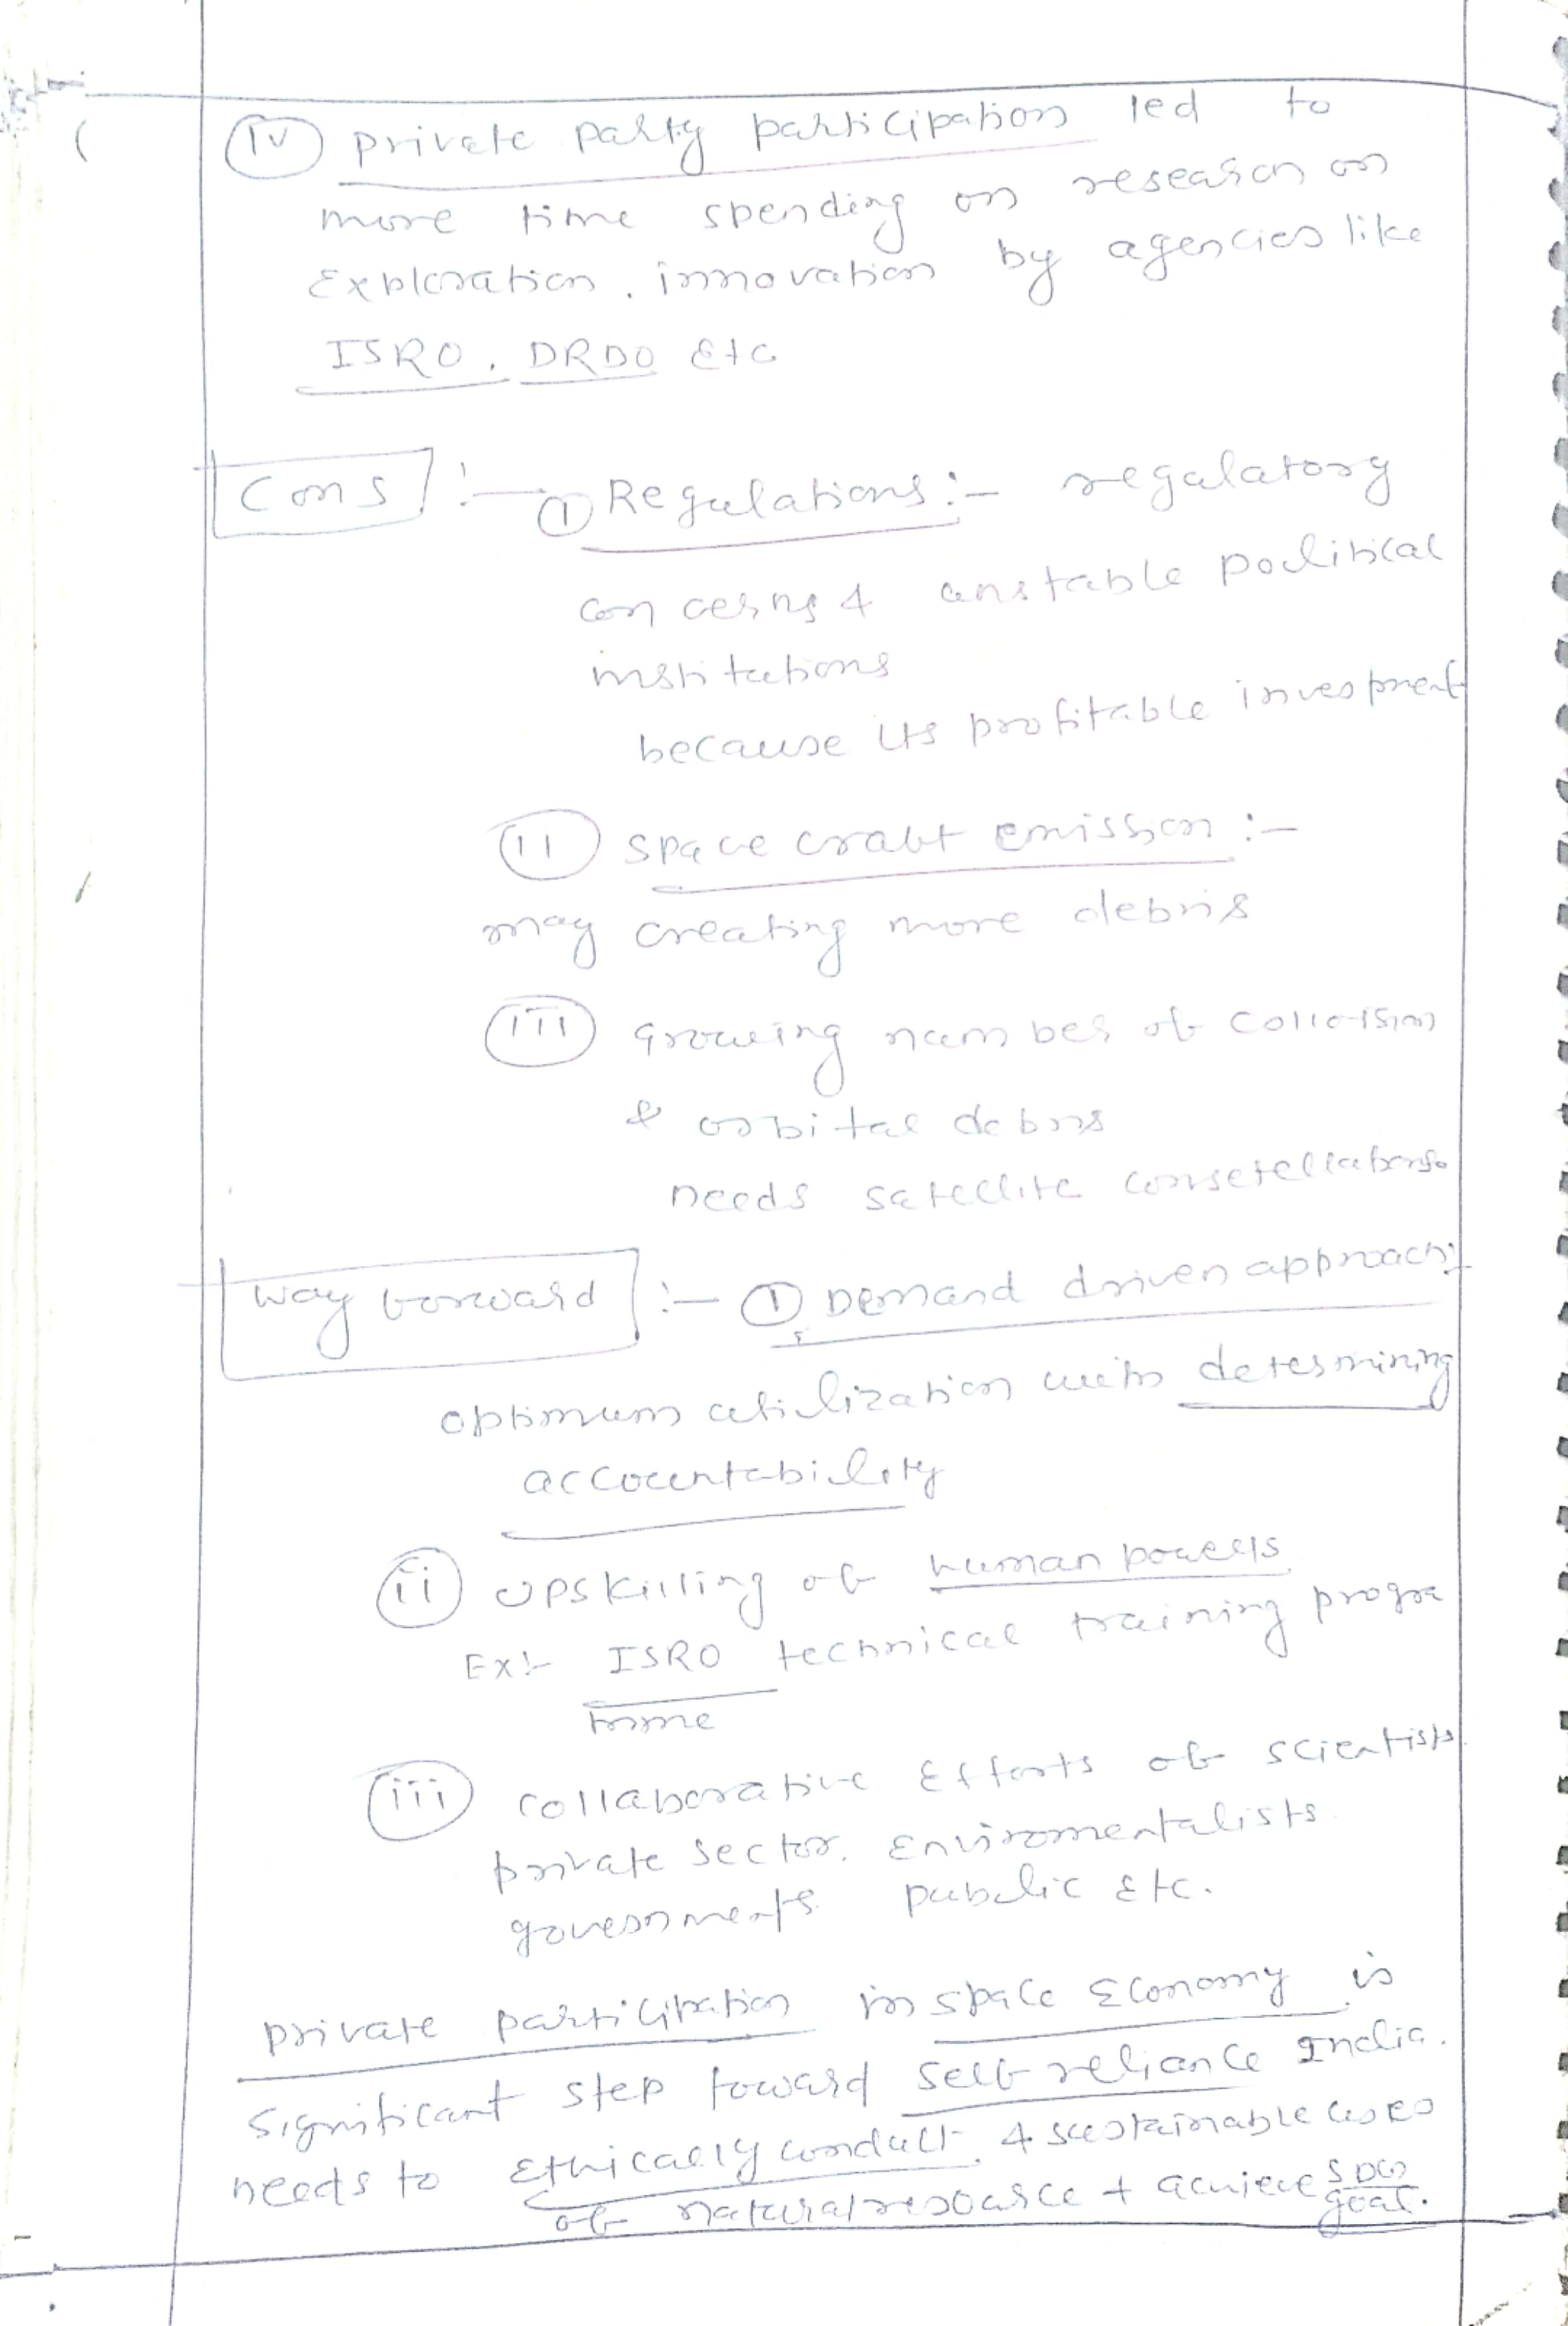 (iv) private party participation led to
more time spending on research on
Exploration, innovation by agencies like
ISRO, DRDO Etc
Cons :- (i) Regulations :- regulatory
concerns & unstable poulitical
institutions
because its profitable investment
(ii) space craft emission :-
may creating more debris
(iii) Growing number of collo-ision
& orbital debris
needs satellite consetellations.
Way forward :- (i) Demand driven approach:
optimum utilization with determining
accountability
(ii) Upskilling of human powers
Ex:- ISRO technical training progra
mme
(iii) collaborative Efforts of scientists
private sector, Enviromentalists
governments public Etc.
private participation in space Economy is
significant step toward self-reliance India.
needs to Ethically conduct & sustainable uses
of natural resource & achieve SDG
goal.